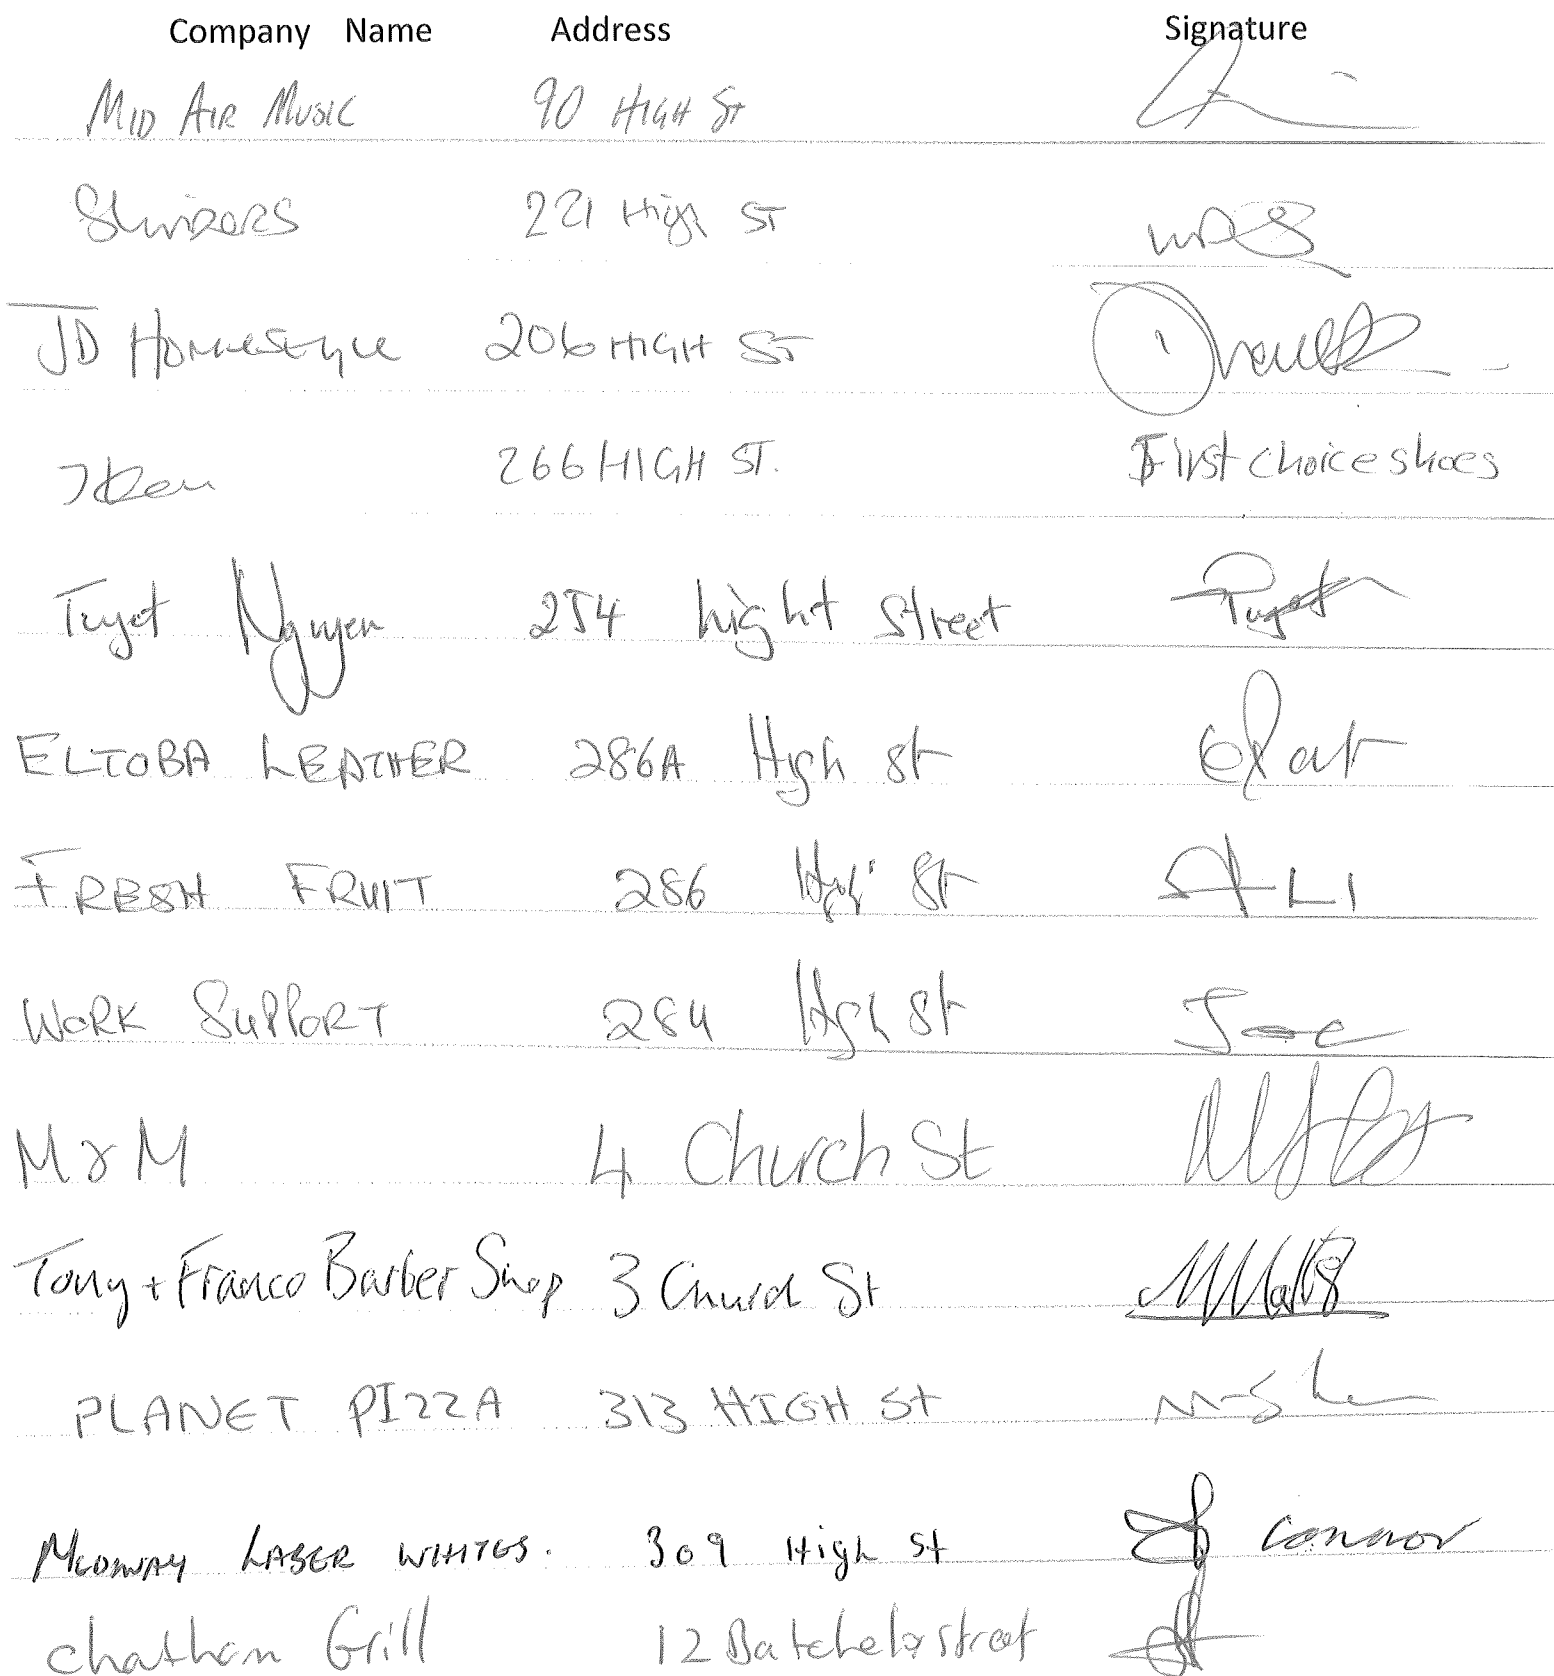 Company Name Address Signature
MID AIR MUSIC 90 HIGH St
221 High ST
JD Homestyle 206 HIGH ST
266 HIGH ST. First choice shoes
Tuyet Nguyen 254 hight street Tuyet
ELTOBA LEATHER 286A High st
FRESH FRUIT 286 High St ALI
WORK SUPPORT 284 High st Joe
M & M 4 Church St
Tony + Franco Barber Shop 3 Church St
PLANET PIZZA 313 HIGH St
MEDWAY LASER WHITES. 309 High St Connor
Chatham Grill 12 Batchelor street